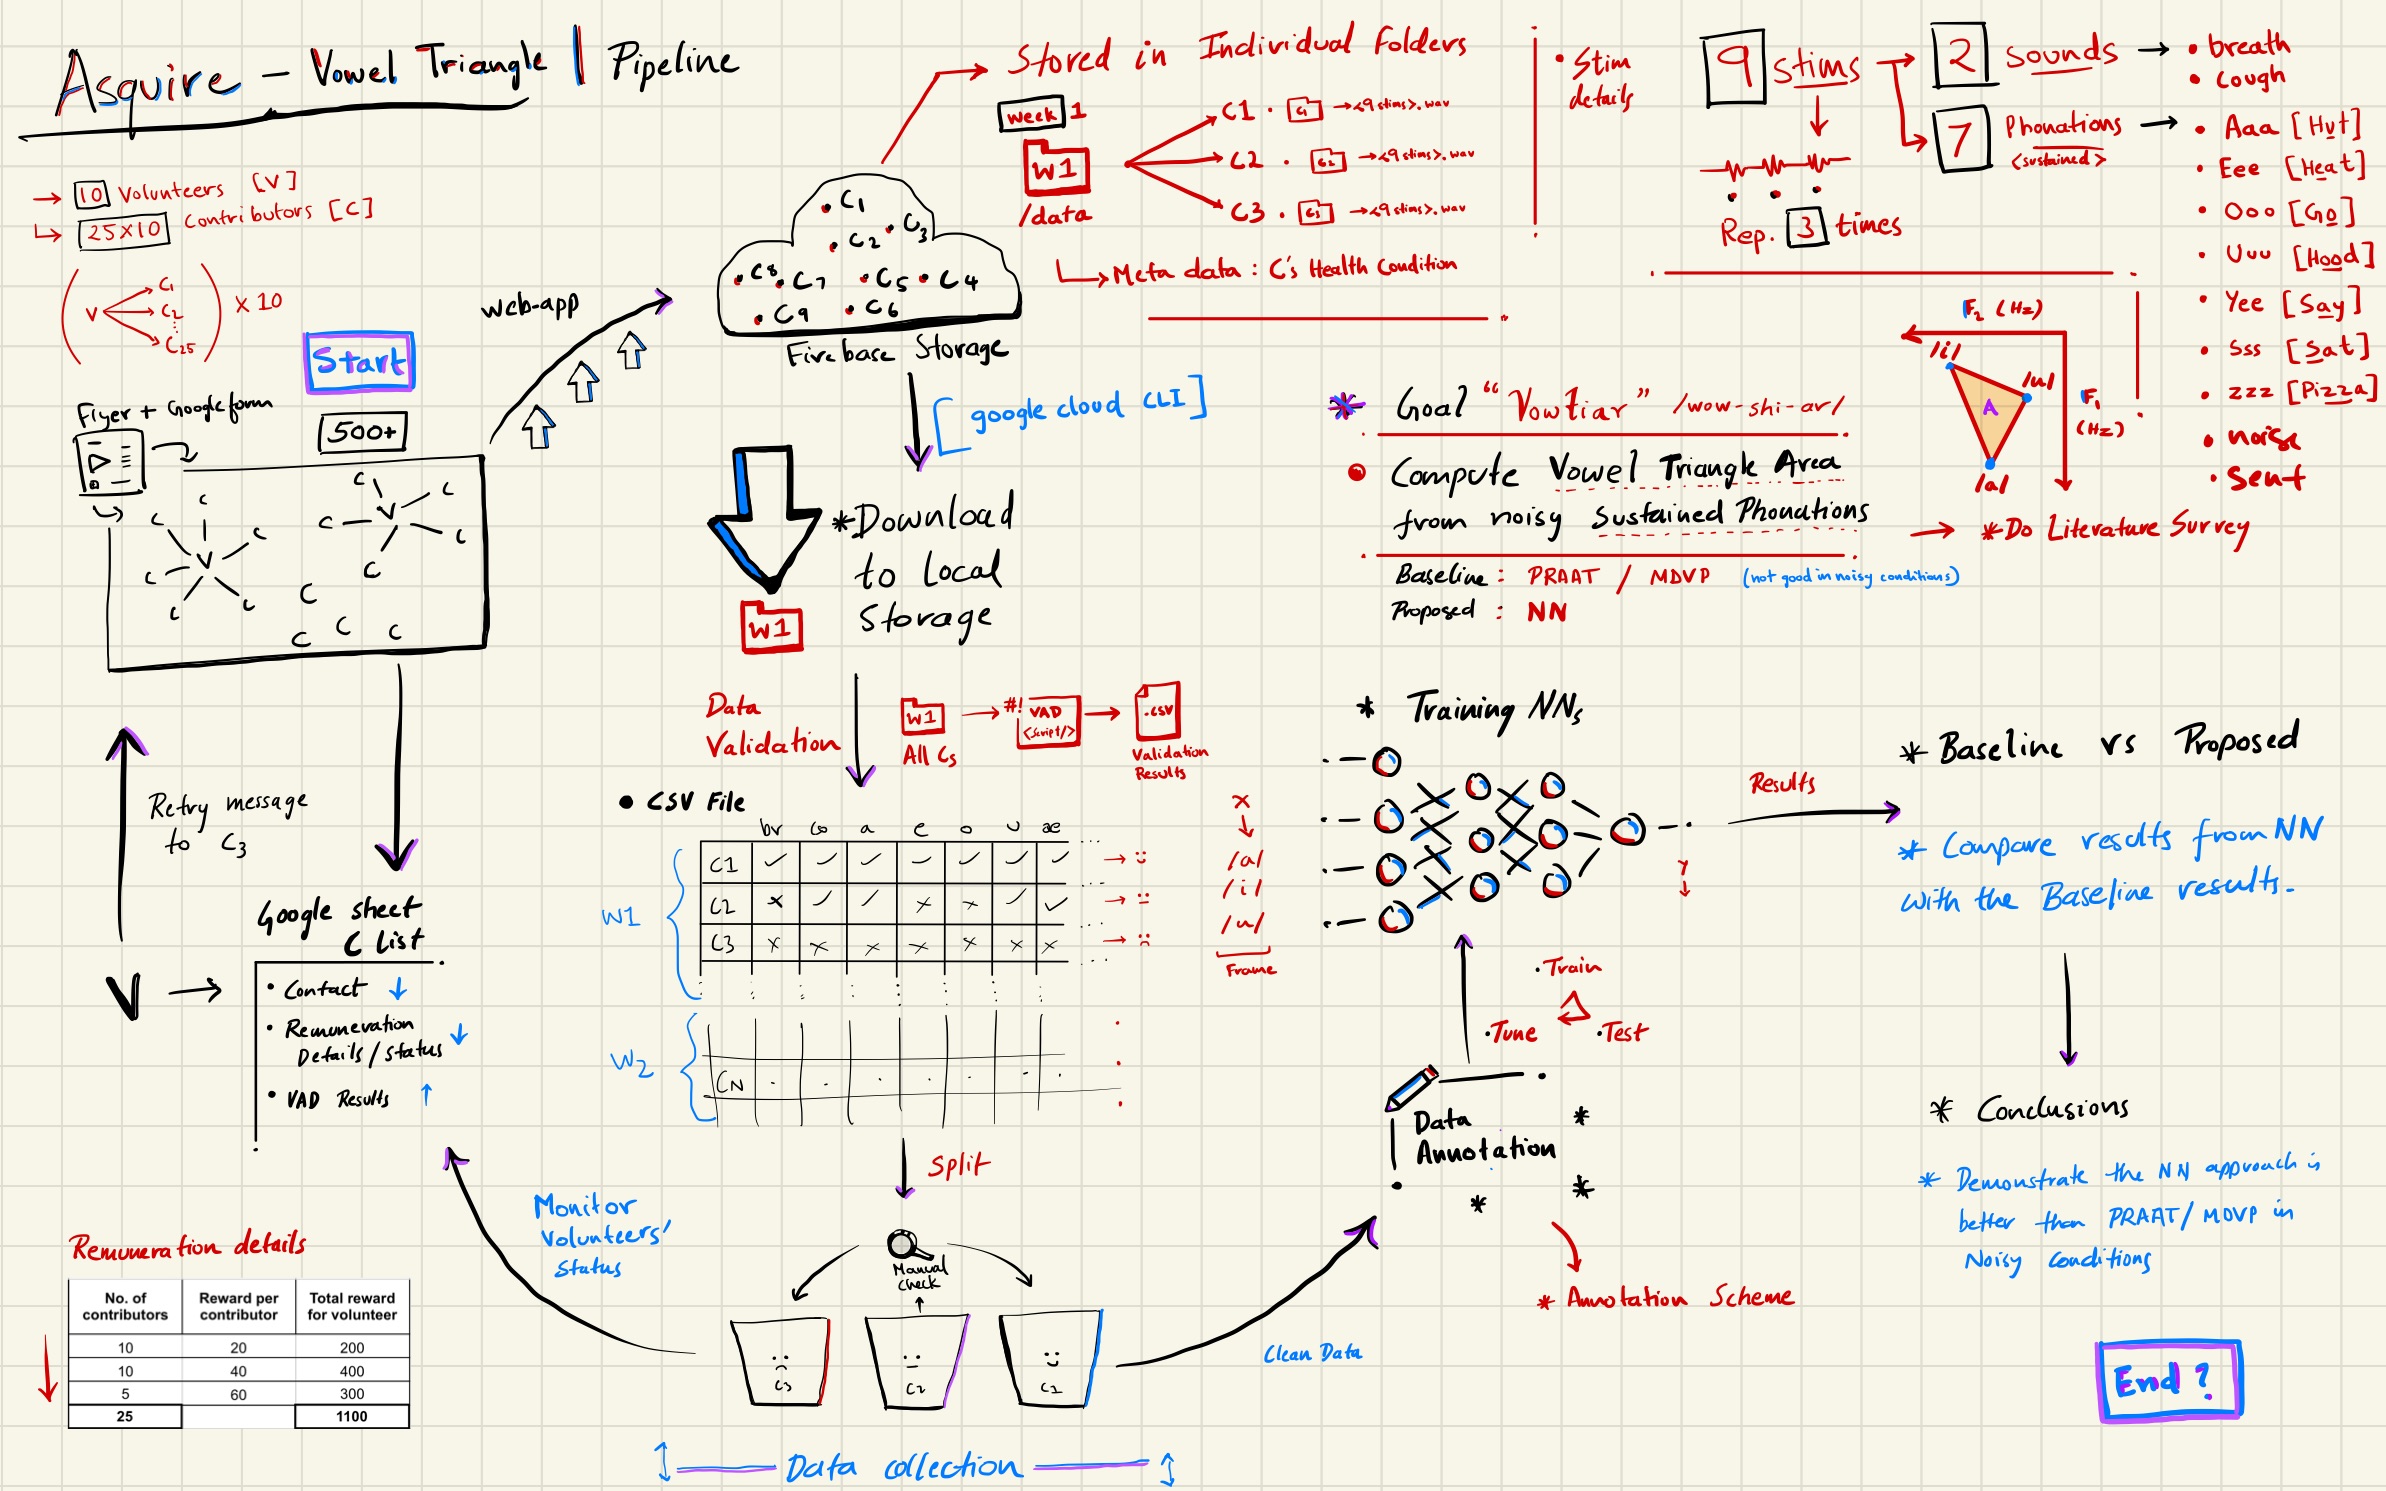 Asquire - Vowel Triangle | Pipeline
→ 10 Volunteers [V]
↳ 25x10 Contributors [C]
V
C1
C2
C25
x 10
Start
Flyer + Google form
500+
C
C
C
C
C
C
C
V
C
C
C
C
C
C
V
C
C
C
C
C
web-app
C1
C2
C3
C8
C7
C5
C4
C9
C6
Firebase Storage
Stored in Individual Folders
Week 1
W1
/data
C1 · C1 → <9 stims>.wav
C2 · C2 → <9 stims>.wav
C3 · C3 → <9 stims>.wav
Meta data : C's Health Condition
• Stim details
9 stims
Rep. 3 times
2 Sounds →
• breath
• cough
7 Phonations →
<sustained>
• Aaa [Hut]
• Eee [Heat]
• Ooo [Go]
• Uuu [Hood]
• Yee [Say]
• Sss [Sat]
• zzz [Pizza]
• noise
• sent
F2 (Hz)
/i/
/u/
A
F1
(Hz)
/a/
[google cloud CLI]
* Download
to Local
Storage
W1
* Goal "Vowtiar" /wow-shi-ar/
• Compute Vowel Triangle Area
from noisy Sustained Phonations
→ * Do Literature Survey
Baseline : PRAAT / MDVP (not good in noisy conditions)
Proposed : NN
Data
Validation
W1
All Cs
#! VAD
<script/>
.csv
Validation
Results
• CSV File
br co a e o u ae
W1
C1 ✓ ✓ ✓ ✓ ✓ ✓ ✓
C2 x ✓ ✓ x x ✓ ✓
C3 x x x x x x x
W2
CN
Split
Manual
check
C3
C2
C1
Data collection
Retry message
to C3
V →
Google sheet
C List
• Contact ↓
• Remuneration
Details/status ↓
• VAD Results ↑
Monitor
Volunteers'
Status
Remuneration details
No. of contributors Reward per contributor Total reward for volunteer
10 20 200
10 40 400
5 60 300
25 1100
Clean Data
Data
Annotation
* Annotation Scheme
• Train
• Tune
• Test
* Training NNs
x
/a/
/i/
/u/
Frame
y
Results
* Baseline vs Proposed
* Compare results from NN
with the Baseline results.
* Conclusions
* Demonstrate the NN approach is
better than PRAAT/MDVP in
Noisy Conditions
End ?